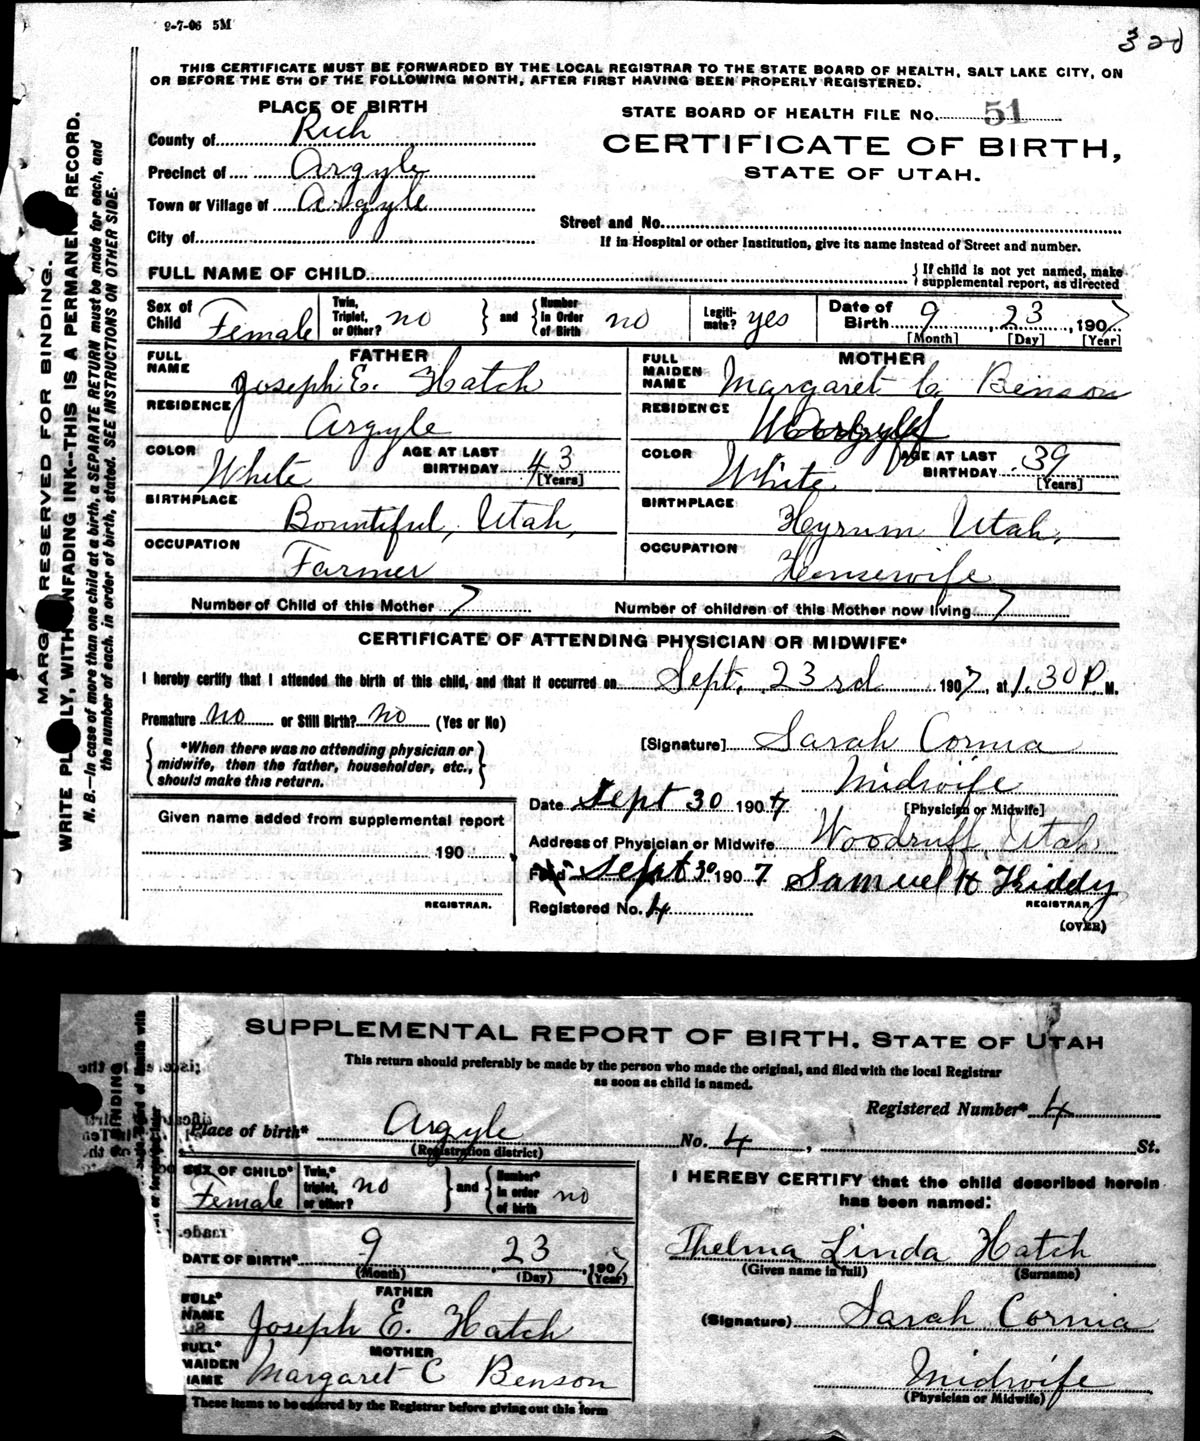 9-7-06 5M
320
THIS CERTIFICATE MUST BE FORWARDED BY THE LOCAL REGISTRAR TO THE STATE BOARD OF HEALTH, SALT LAKE CITY, ON
OR BEFORE THE 5TH OF THE FOLLOWING MONTH, AFTER FIRST HAVING BEEN PROPERLY REGISTERED.
PLACE OF BIRTH
STATE BOARD OF HEALTH FILE NO. 51
County of Rich
CERTIFICATE OF BIRTH,
Precinct of Argyle
STATE OF UTAH.
Town or Village of Argyle
Street and No.
City of
If in Hospital or other Institution, give its name instead of Street and number.
FULL NAME OF CHILD
{ If child is not yet named, make supplemental report, as directed
Sex of Child Female Twin, Triplet, or Other? no } and { Number in Order of Birth no Legiti-mate? yes Date of Birth 9 , 23 , 1907
[Month] [Day] [Year]
FATHER MOTHER
FULL NAME Joseph E. Hatch FULL MAIDEN NAME Margaret C. Benson
RESIDENCE Argyle RESIDENCE
COLOR White AGE AT LAST BIRTHDAY 43 [Years] COLOR White AGE AT LAST BIRTHDAY 39 [Years]
BIRTHPLACE Bountiful, Utah, BIRTHPLACE Hyrum Utah,
OCCUPATION Farmer OCCUPATION Housewife
Number of Child of this Mother 7 Number of children of this Mother now living 7
CERTIFICATE OF ATTENDING PHYSICIAN OR MIDWIFE*
I hereby certify that I attended the birth of this child, and that it occurred on Sept. 23rd 1907, at 1.30 P. M.
Premature no or Still Birth? no (Yes or No)
{ *When there was no attending physician or midwife, then the father, householder, etc., should make this return. }
[Signature] Sarah Cornia
Midwife
[Physician or Midwife]
Date Sept 30 1907
Given name added from supplemental report
190
REGISTRAR.
Address of Physician or Midwife Woodruff, Utah
Filed Sept 30 1907 Samuel H Kiddy
REGISTRAR.
Registered No. 4
(OVER)
MARGIN RESERVED FOR BINDING.
WRITE PLAINLY, WITH UNFADING INK--THIS IS A PERMANENT RECORD.
N. B.—In case of more than one child at a birth, a SEPARATE RETURN must be made for each, and
the number of each, in order of birth, stated. SEE INSTRUCTIONS ON OTHER SIDE.
SUPPLEMENTAL REPORT OF BIRTH, STATE OF UTAH
This return should preferably be made by the person who made the original, and filed with the local Registrar
as soon as child is named.
Registered Number* 4
Place of birth* Argyle No. 4 , St.
(Registration district)
SEX OF CHILD* Female Twin,* triplet, or other? no } and { Number* in order of birth no
I HEREBY CERTIFY that the child described herein
has been named:
DATE OF BIRTH* 9 , 23 , 1907
(Month) (Day) (Year)
Thelma Linda Hatch
(Given name in full) (Surname)
FATHER
FULL* NAME Joseph E. Hatch
(Signature) Sarah Cornia
MOTHER
FULL* MAIDEN NAME Margaret C Benson
Midwife
(Physician or Midwife)
These items to be entered by the Registrar before giving out this form